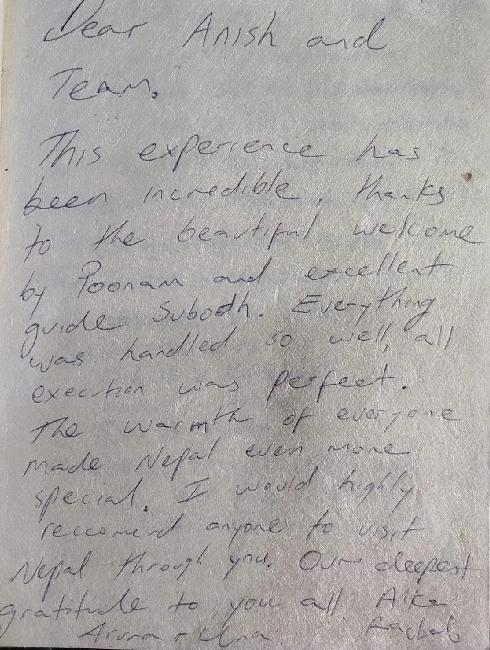 Dear Anish and
Team,
This experience has
been incredible, thanks
to the beautiful welcome
by Poonam and excellent
guide Subodh. Everything
was handled so well, all
execution was perfect.
The warmth of everyone
made Nepal even more
special. I would highly
reccomend anyone to visit
Nepal through you. Our deepest
gratitude to you all
Aruna +